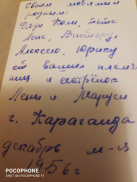 Своим любимым
родным:
дяде Коле, тёте
Лене, Виктору,
Алексею, Юрику
от ваших племян
ниц и сестрёнок
Лены и Маруси
г. Караганда
декабрь м-ц
1956 г
POCOPHONE
SHOT ON POCOPHONE F1